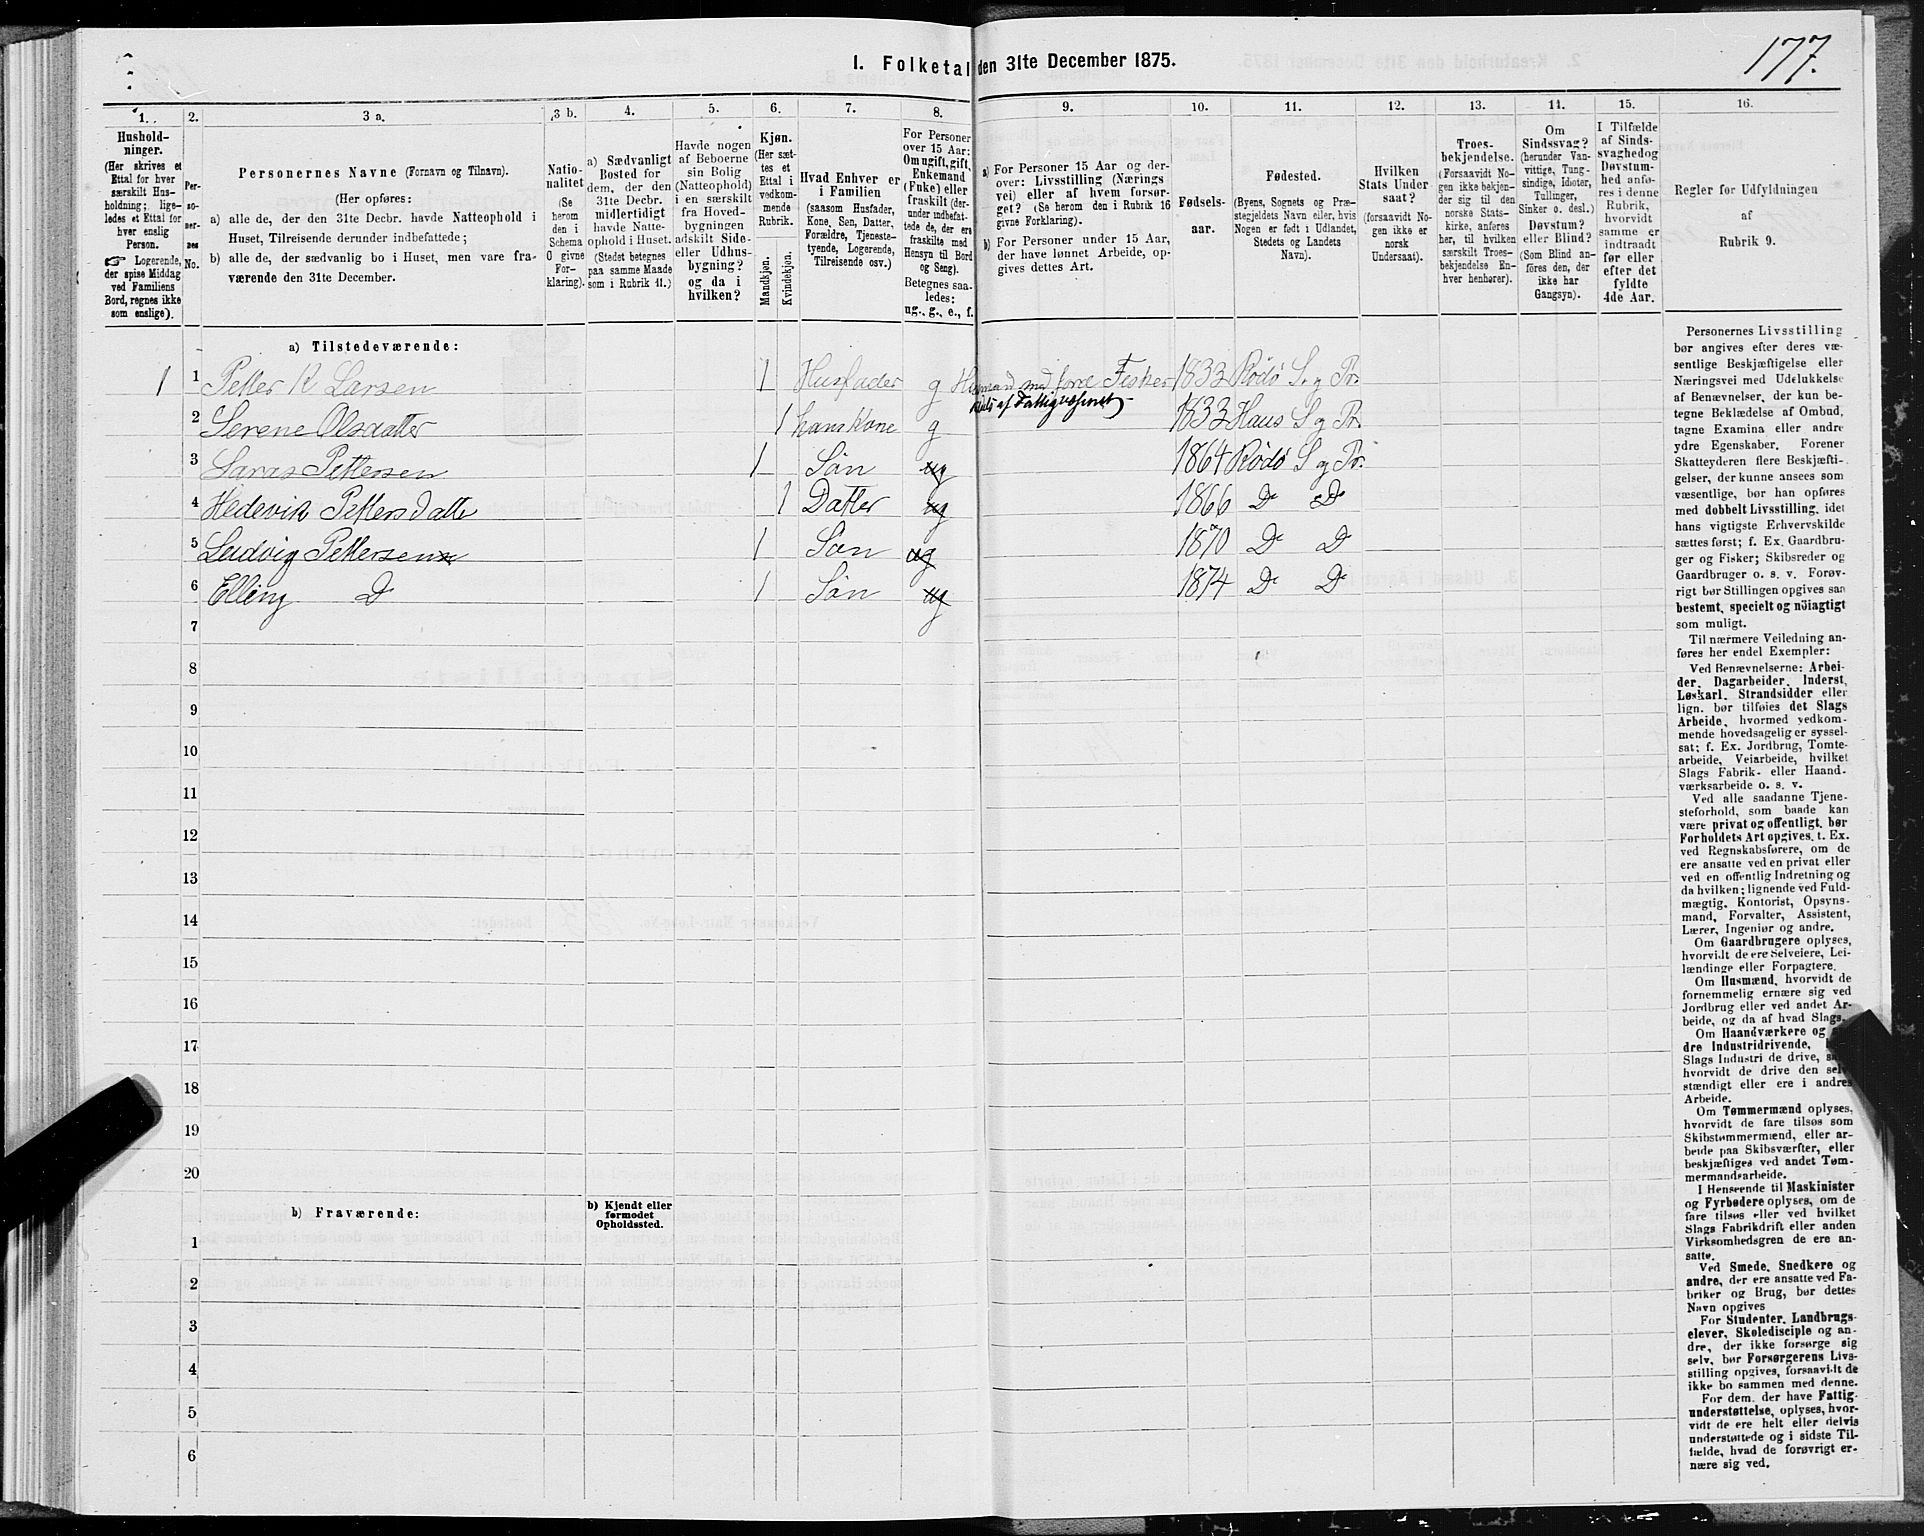 177.
I. Folketal den 31te December 1875.
1. 2. 3 a. 3 b. 4. 5. 6. 7. 8. 9. 10. 11. 12. 13. 14. 15. 16.
Hushold-
ninger.
(Her skrives et
Ettal for hver
særskilt Hus-
holdning; lige-
ledes et Ettal for
hver enslig
Person.
☞ Logerende,
der spise Middag
ved Familiens
Bord, regnes ikke
som enslige).
Per-
so-
ner-
nes
No.
Personernes Navne (Fornavn og Tilnavn).
(Her opføres:
a) alle de, der den 31te Decbr. havde Natteophold i
Huset, Tilreisende derunder indbefattede;
b) alle de, der sædvanlig bo i Huset, men vare fra-
værende den 31te December.
Natio-
nalitet
(Se
herom
den i
Schema
O givne
For-
klaring).
a) Sædvanligt
Bosted for
dem, der den
31te Decbr.
midlertidigt
havde Natte-
ophold i Huset.
(Stedet betegnes
paa samme Maade
som i Rubrik 11.)
Havde nogen
af Beboerne
sin Bolig
(Natteophold)
i en særskilt
fra Hoved-
bygningen
adskilt Side-
eller Udhus-
bygning?
og da i
hvilken?
Kjøn.
(Her sæt-
tes et
Ettal i
vedkom-
mende
Rubrik.
Mandkjøn.
Kvindekjøn.
Hvad Enhver er
i Familien
(saasom Husfader,
Kone, Søn, Datter,
Forældre, Tjeneste-
tyende, Logerende,
Tilreisende osv.)
For Personer
over 15 Aar:
Om ugift, gift,
Enkemand
(Enke) eller
fraskilt (der-
under indbefat-
tede de, der ere
fraskilte med
Hensyn til Bord
og Seng).
Betegnes saa-
ledes:
ug., g., e., f.
a) For Personer 15 Aar og der-
over: Livsstilling (Nærings
vei) eller af hvem forsør-
get? (Se herom den i Rubrik 16
givne Forklaring).
b) For Personer under 15 Aar,
der have lønnet Arbeide, op-
gives dettes Art.
Fødsels-
aar.
Fødested.
(Byens, Sognets og Præ-
stegjeldets Navn eller, hvis
Nogen er født i Udlandet,
Stedets og Landets
Navn).
Hvilken
Stats Under
saat?
(forsaavidt No-
gen ikke er
norsk
Undersaat).
Troes-
bekjendelse.
(Forsaavidt No-
gen ikke bekjen-
der sig til den
norske Stats-
kirke, anføres
her, til hvilken
særskilt Troes-
bekjendelse En-
hver henhører).
Om
Sindssvag?
(herunder Van-
vittige, Tung-
sindige, Idioter,
Tullinger,
Sinker o. desl.)
Døvstum?
eller Blind?
(Som Blind an-
føres den, der
ikke har
Gangsyn).
I Tilfælde
af Sinds-
svaghed og
Døvstum-
hed anfø-
res i denne
Rubrik,
hvorvidt
samme er
indtraadt
før eller
efter det
fyldte
4de Aar.
Regler for Udfyldningen
af
Rubrik 9.
a) Tilstedeværende:
1 1 Petter K Larsen 1 Husfader g Husmand med Jord Fisker 1833 Rödö S. og Pr.
Fattigvæsenet
2 Serene Olsdatter 1 hans Kone g 1833 Haus S og Pr.
3 Petersen 1 Sön ug 1864 Rödö S og Pr.
4 Hedevik Pettersdatte 1 Datter ug 1866 Do Do
5 Ludvig Pettersen 1 Sön ug 1870 Do Do
6 Elling Do 1 Sön ug 1874 Do Do
7
8
9
10
11
12
13
14
15
16
17
18
19
20
b) Fraværende:
b) Kjendt eller
formodet
Opholdssted.
1
2
3
4
5
6
Personernes Livsstilling
bør angives efter deres væ-
sentlige Beskjæftigelse eller
Næringsvei med Udelukkelse
af Benævnelser, der kun be-
tegne Beklædelse af Ombud,
tagne Examina eller andre
ydre Egenskaber. Forener
Skatteyderen flere Beskjæfti-
gelser, der kunne ansees som
væsentlige, bør han opføres
med dobbelt Livsstilling, idet
hans vigtigste Erhvervskilde
sættes først; f. Ex. Gaardbru-
ger og Fisker; Skibsreder og
Gaardbruger o. s. v. Forøv-
rigt bør Stillingen opgives saa
bestemt, specielt og nöiagtigt
som muligt.
Til nærmere Veiledning an-
føres her endel Exempler:
Ved Benævnelserne: Arbei-
der, Dagarbeider, Inderst,
Løskarl, Strandsidder eller
lign. bør tilføies det Slags
Arbeide, hvormed vedkom-
mende hovedsagelig er syssel-
sat; f. Ex. Jordbrug, Tomte-
arbeide, Veiarbeide, hvilket
Slags Fabrik- eller Haand-
værksarbeide o. s. v.
Ved alle saadanne Tjene-
steforhold, som baade kan
være privat og offentligt, bør
Forholdets Art opgives, t. Ex.
ved Regnskabsførere, om de
ere ansatte ved en privat eller
ved en offentlig Indretning og
da hvilken; lignende ved Fuld-
mægtig, Kontorist, Opsyns-
mand, Forvalter, Assistent,
Lærer, Ingeniør og andre.
Om Gaardbrugere oplyses,
hvorvidt de ere Selveiere, Lei-
lændinge eller Forpagtere.
Om Husmænd, hvorvidt de
fornemmelig ernære sig ved
Jordbrug eller ved andet Ar-
beide, og da af hvad Slags.
Om Haandværkere og
dre Industridrivende,
Slags Industri de drive,
hvorvidt de drive den selv-
stændigt eller ere i andres
Arbeide.
Om Tømmermænd oplyses,
hvorvidt de fare tilsøs som
Skibstømmermænd, eller ar-
beide paa Skibsværfter, eller
beskjæftiges ved andet Tøm-
mermandsarbeide.
I Henseende til Maskinister
og Fyrbødere oplyses, om de
fare tilsøs eller ved hvilket
Slags Fabrikdrift eller anden
Virksomhedsgren de ere an-
satte.
Ved Smede, Snedkere og
andre, der ere ansatte ved Fa-
briker og Brug, bør dettes
Navn opgives
For Studenter, Landbrugs-
elever, Skoledisciple og an-
dre, der ikke forsørge sig
selv, bør Forsørgerens Livs-
stilling opgives, forsaavidt de
ikke bo sammen med denne.
For dem, der have Fattig-
understøttelse, oplyses, hvor-
vidt de ere helt eller delvis
understøttede og i sidste Til-
fælde, hvad de forøvrigt er-
nære sig ved.